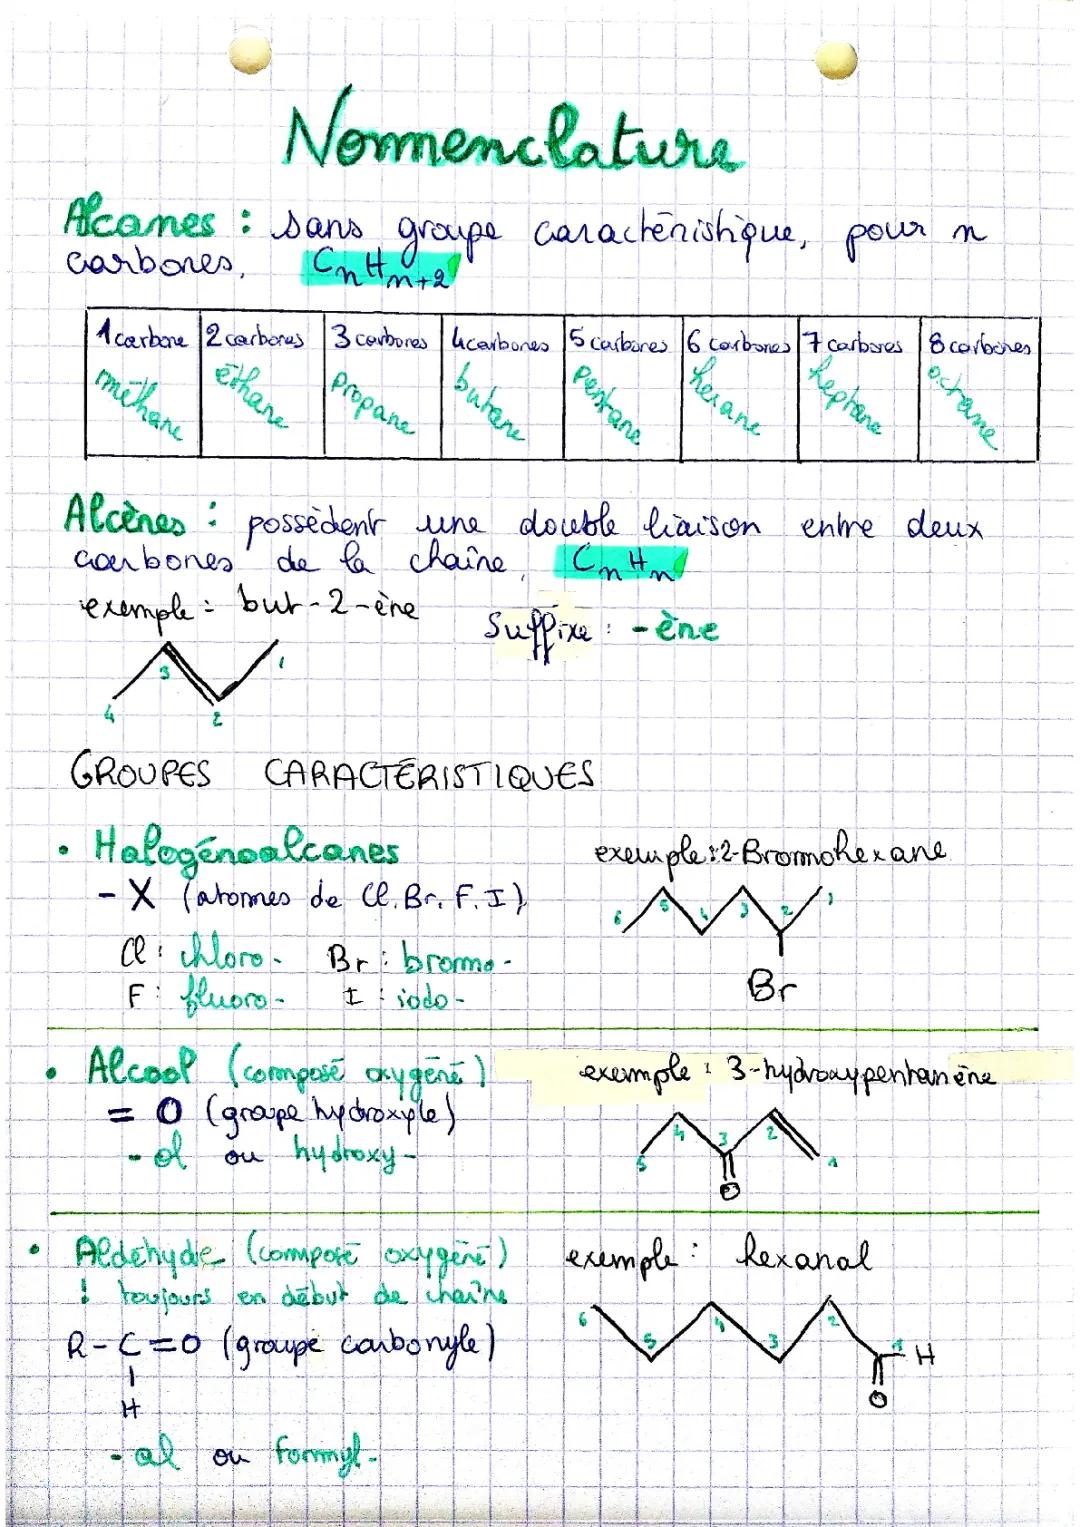 Nommenclature
Alcanes : sans groupe caractéristique, pour n
carbones, CnHn+2
1 carbone 2 carbones 3 carbones 4 carbones 5 carbones 6 carbones 7 carbones 8 carbones
méthane éthane propane butane pentane hexane heptane octane
Alcènes : possèdent une double liaison entre deux
carbones de la chaîne, CnHn
exemple : but-2-ène
Suffixe : -ène
3 1
4 2
GROUPES CARACTÉRISTIQUES
• Halogénoalcanes
- X (atomes de Cl, Br, F, I)
Cl : chloro- Br : bromo-
F : fluoro- I : iodo-
exemple : 2-Bromohexane
6 5 4 3 2 1
Br
• Alcool (composé oxygéné)
= O (groupe hydroxyle)
- ol ou hydroxy-
exemple : 3-hydroxypentanène
5 4 3 2 1
O
• Aldéhyde (composé oxygéné)
! toujours en début de chaîne
R-C=O (groupe carbonyle)
H
- al ou formyl-
exemple : hexanal
6 5 4 3 2 1 H
O